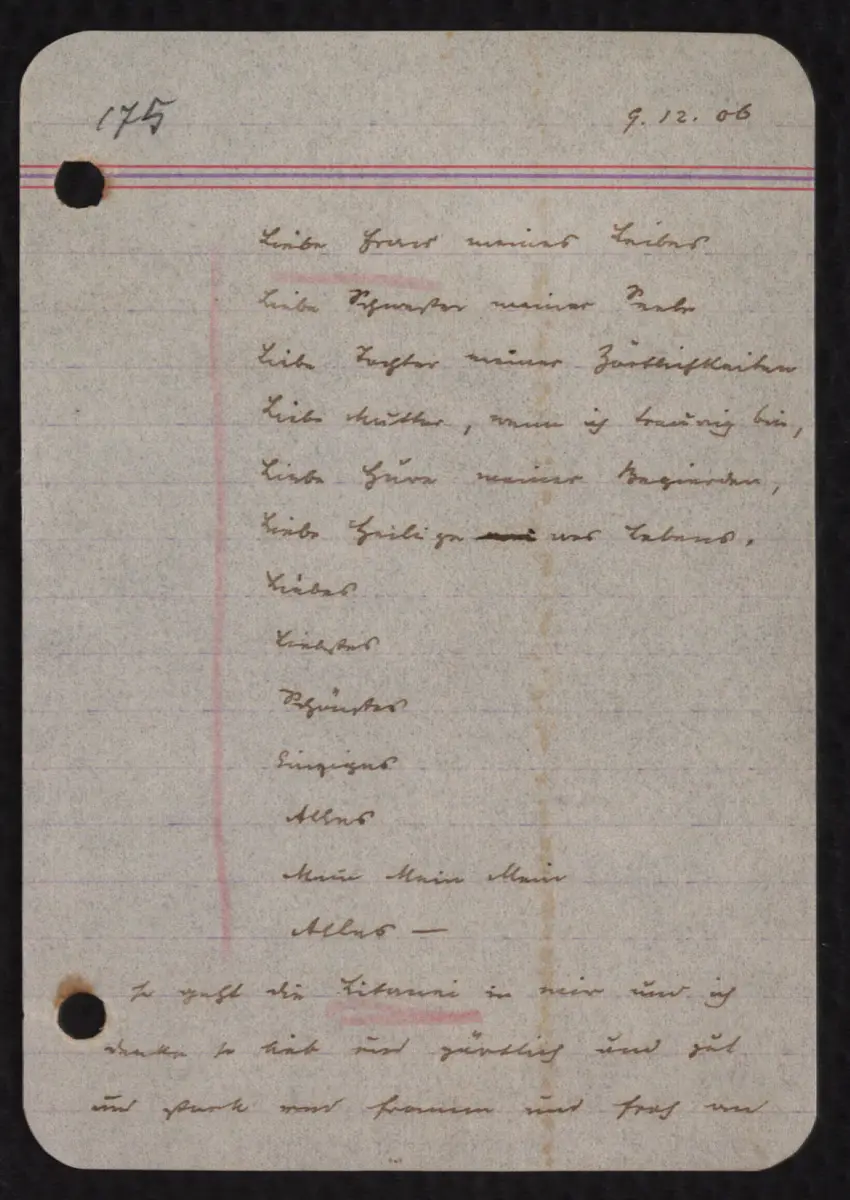 175
9. 12. 06
Liebe Frau meines Leibes
Liebe Schwester meiner Seele
Liebe Tochter meiner Zärtlichkeiten
Liebe Mutter, wenn ich traurig bin,
Liebe Hure meiner Begierden,
Liebe Heilige des Lebens.
Liebes
Liebstes
Schönstes
Einziges
Alles
Mein Mein Mein
Alles —
So geht die Litanei in mir und ich
denke so lieb und zärtlich und gut
und stark und fromm und froh an